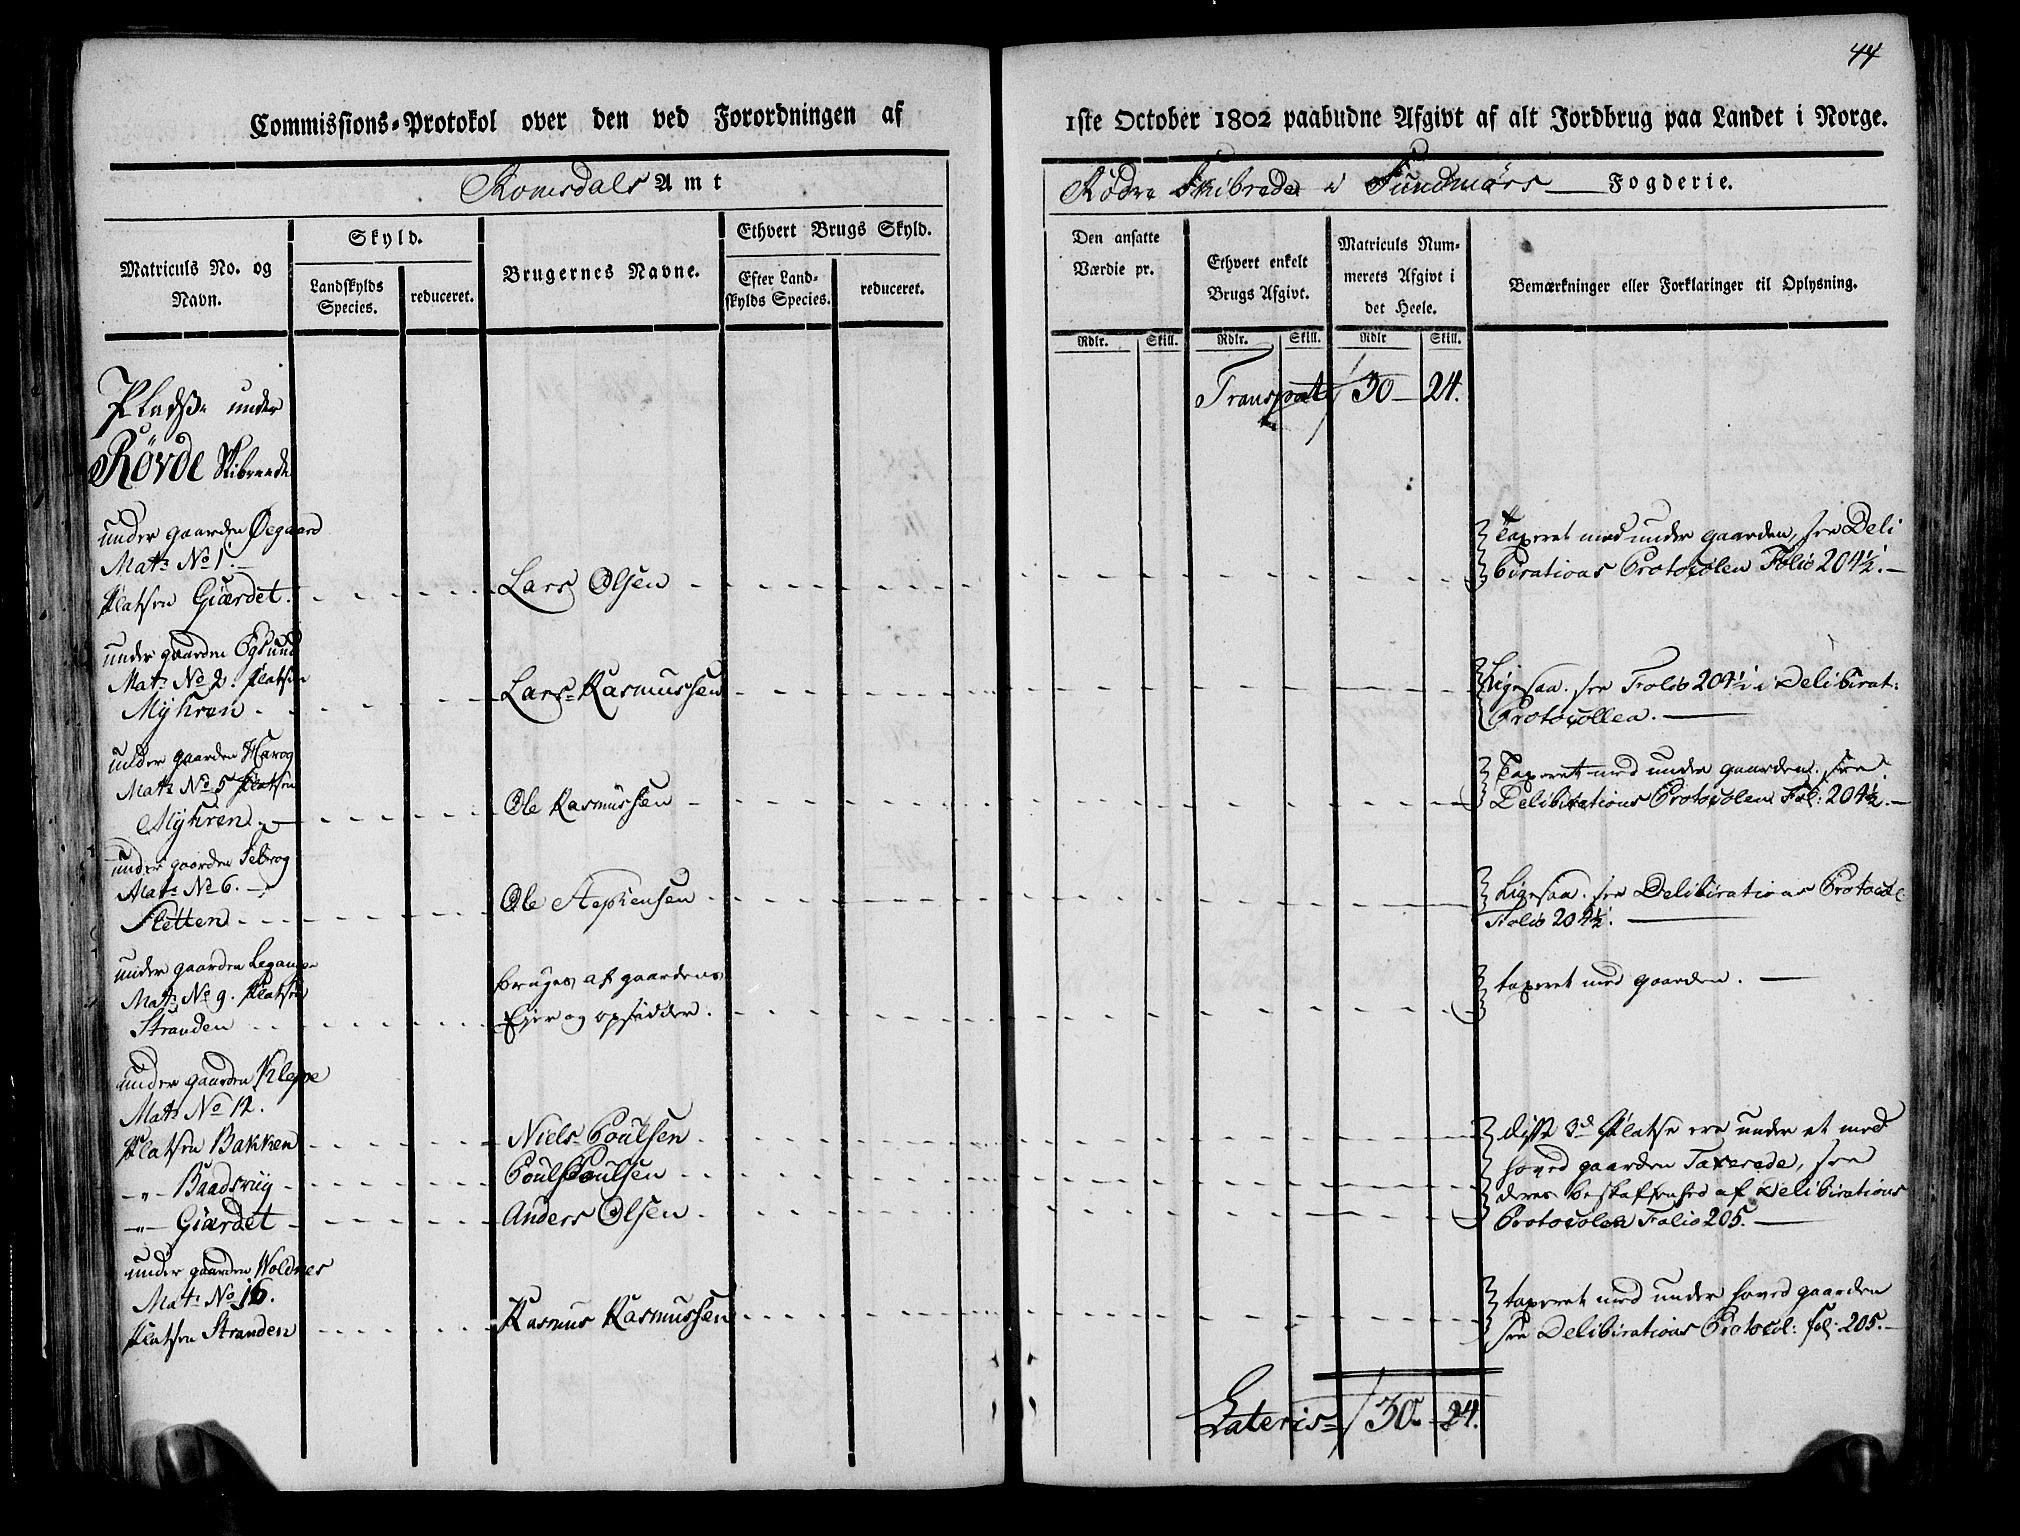 44
Commissions-Protokol over den ved Forordningen af
1ste October 1802 paabudne Afgivt af alt Jordbrug paa Landet i Norge.
Romsdals Amt
Rödve Skibrede i Sundmørs Fogderie.
Matriculs No. og
Navn.
Skyld.
Landskylds
Species.
reduceret.
Brugernes Navne.
Ethvert Brugs Skyld.
Efter Land-
skylds Species.
reduceret.
Den ansatte
Værdie pr.
Rdlr. Skill.
Ethvert enkelt
Brugs Afgivt.
Rdlr. Skill.
Matriculs Num-
merets Afgivt i
det Heele.
Rdlr Skill.
Bemærkninger eller Forklaringer til Oplysning.
Transport 30 - 24.
Pladse under
Rövde Skibreede
under gaarden Øegaard
Mat: No 1.
Platsen Giærdet. Lars Olsen
Taxeret med under gaarden, see Deli
birations Protocolen Folio 204½.
under gaarden Egsund
Mat: No 2. Platsen
Myhren. Lars Rasmussen
Ligesaa. see Folio 204½ i Delibirat:
Protocollen.
under gaarden Haaog
Mat: No 5 Platsen
Myhren. Ole Rasmussen
Taxeret med under gaarden. see
Delibirations Protocolen Fol: 204½.
under gaarden
Mat: No 6.
Sletten Ole Stephensen
Ligesaa. see Delibirations Protocol
Folio 204½.
under gaarden
Mat: No 9. Platsen
Stranden
bruges af gaardens
Ejer og opsidder.
taxeret med gaarden.
under gaarden Kleppe
Mat: No 12.
Platsen Bakken Niels Poulsen
-"- Baadsviig Poul Poulsen
-"- Giærdet Anders Olsen
disse 3de Platse ere under et med
hoved gaarden Taxerede, see
deres beskaffenhed af Delibirations
Protocolen Folio 205.
under gaarden Woldnes
Mat: No 16.
Platsen Stranden Rasmus Rasmussen
taxeret med under hoved gaarden
see Delibirations Protocol: fol: 205.
Lateris 30 - 24.